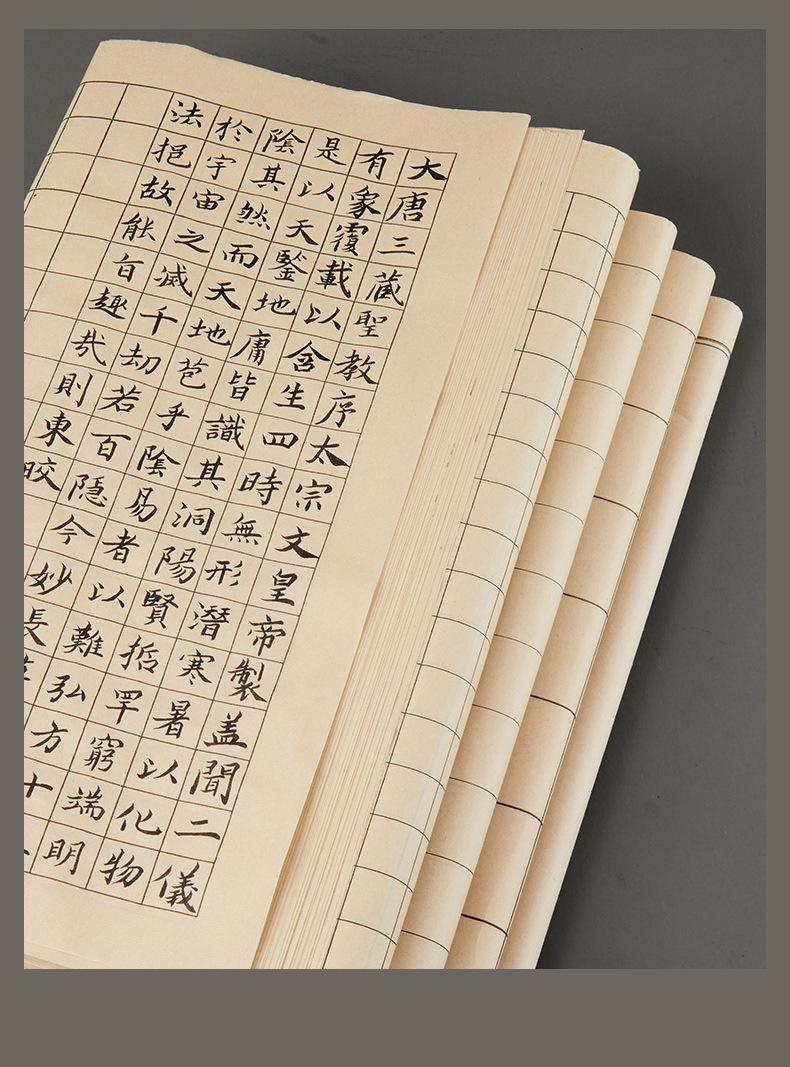 大唐三藏聖教序太宗文皇帝製盖聞二儀
有象覆載以含生四時無形潛寒暑以化物
是以天鍳地庸皆識其洞陽賢哲罕窮端明
陰其然而天地苞乎陰易者以難弘方十
於宇宙之滅千劫若百隱今妙長
法挹故能旨趣哉則東皎